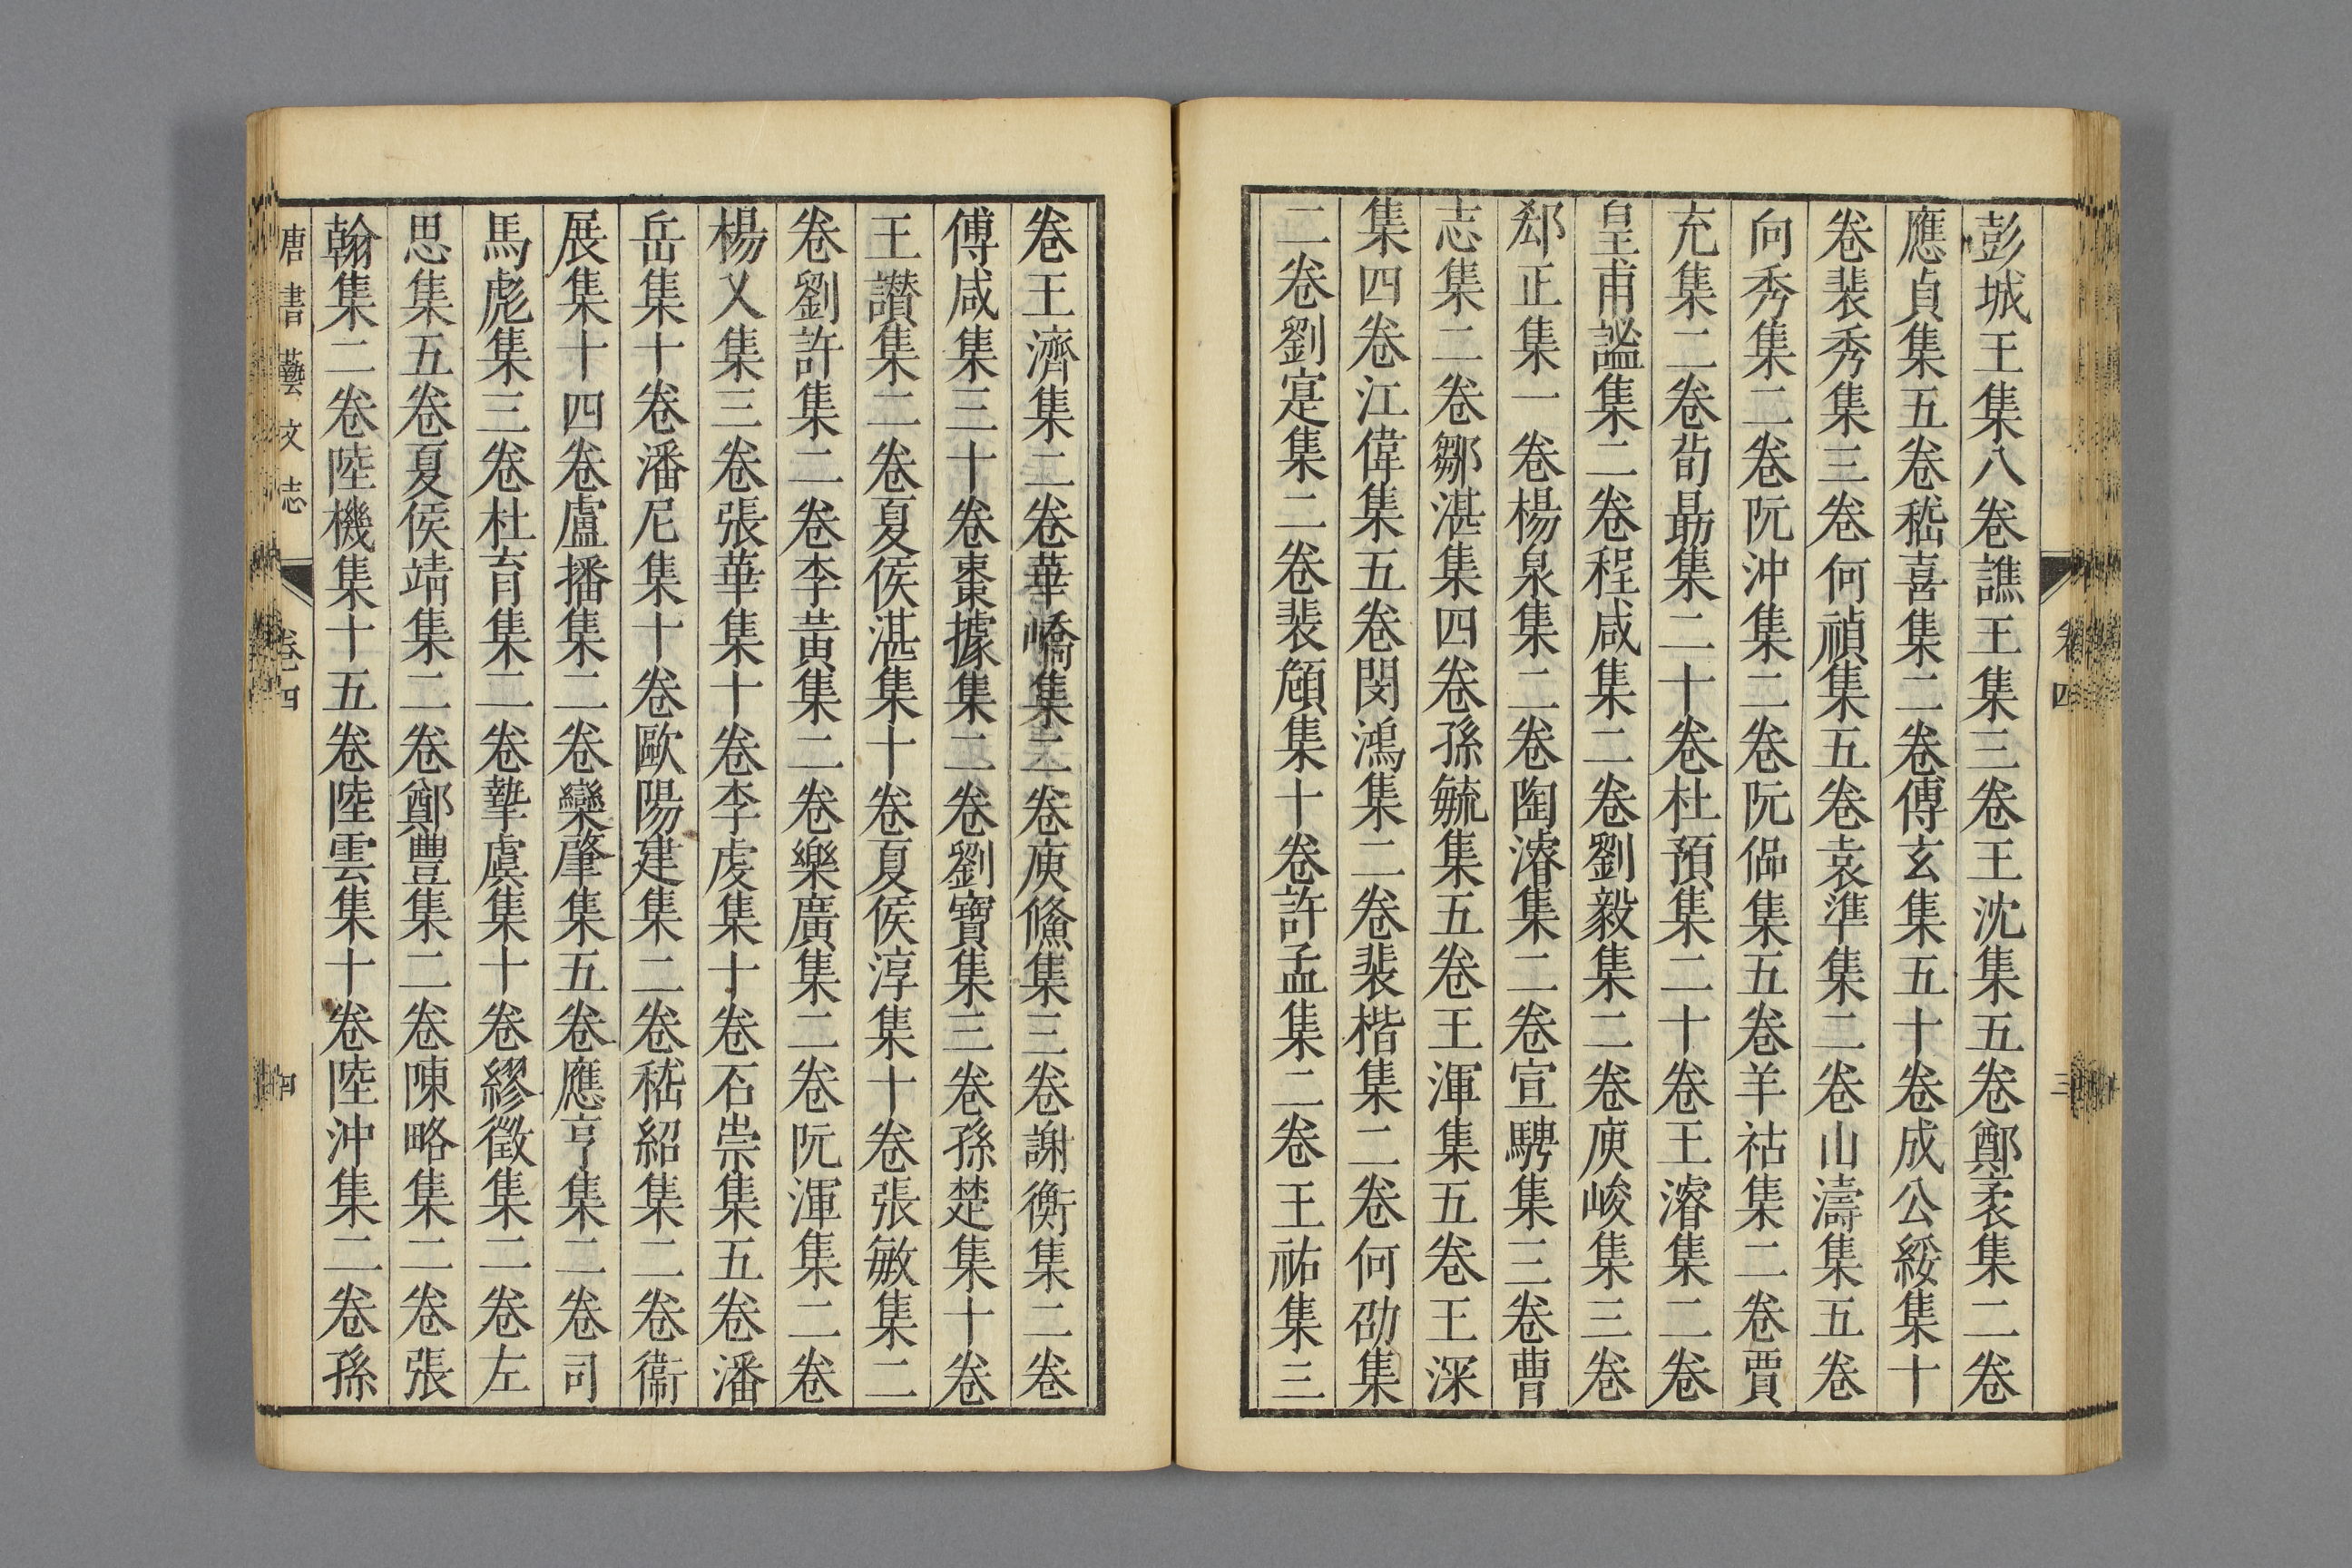 彭城王集八卷譙王集三卷王沈集五卷鄭袤集二卷
應貞集五卷嵇喜集二卷傅玄集五十卷成公綏集十
卷裴秀集三卷何禎集五卷袁準集二卷山濤集五卷
向秀集二卷阮沖集二卷阮侃集五卷羊祜集二卷賈
充集二卷荀勗集二十卷杜預集二十卷王濬集二卷
皇甫謐集二卷程咸集二卷劉毅集二卷庾峻集三卷
郄正集一卷楊泉集二卷陶濬集二卷宣騁集三卷曹
志集二卷鄒湛集四卷孫毓集五卷王渾集五卷王深
集四卷江偉集五卷閔鴻集二卷裴楷集二卷何劭集
二卷劉寔集二卷裴頠集十卷許孟集二卷王祐集三
卷王濟集二卷華嶠集二卷庾鯈集三卷謝衡集二卷
傅咸集三十卷棗據集二卷劉寶集三卷孫楚集十卷
王讚集二卷夏侯湛集十卷夏侯淳集十卷張敏集二
卷劉許集二卷李黃集二卷樂廣集二卷阮渾集二卷
楊乂集三卷張華集十卷李虔集十卷石崇集五卷潘
岳集十卷潘尼集十卷歐陽建集二卷嵇紹集二卷衞
展集十四卷盧播集二卷欒肇集五卷應亨集二卷司
馬彪集三卷杜育集二卷摯虞集十卷繆徵集二卷左
思集五卷夏侯靖集二卷鄭豐集二卷陳略集二卷張
翰集二卷陸機集十五卷陸雲集十卷陸沖集二卷孫
唐書藝文志 卷四